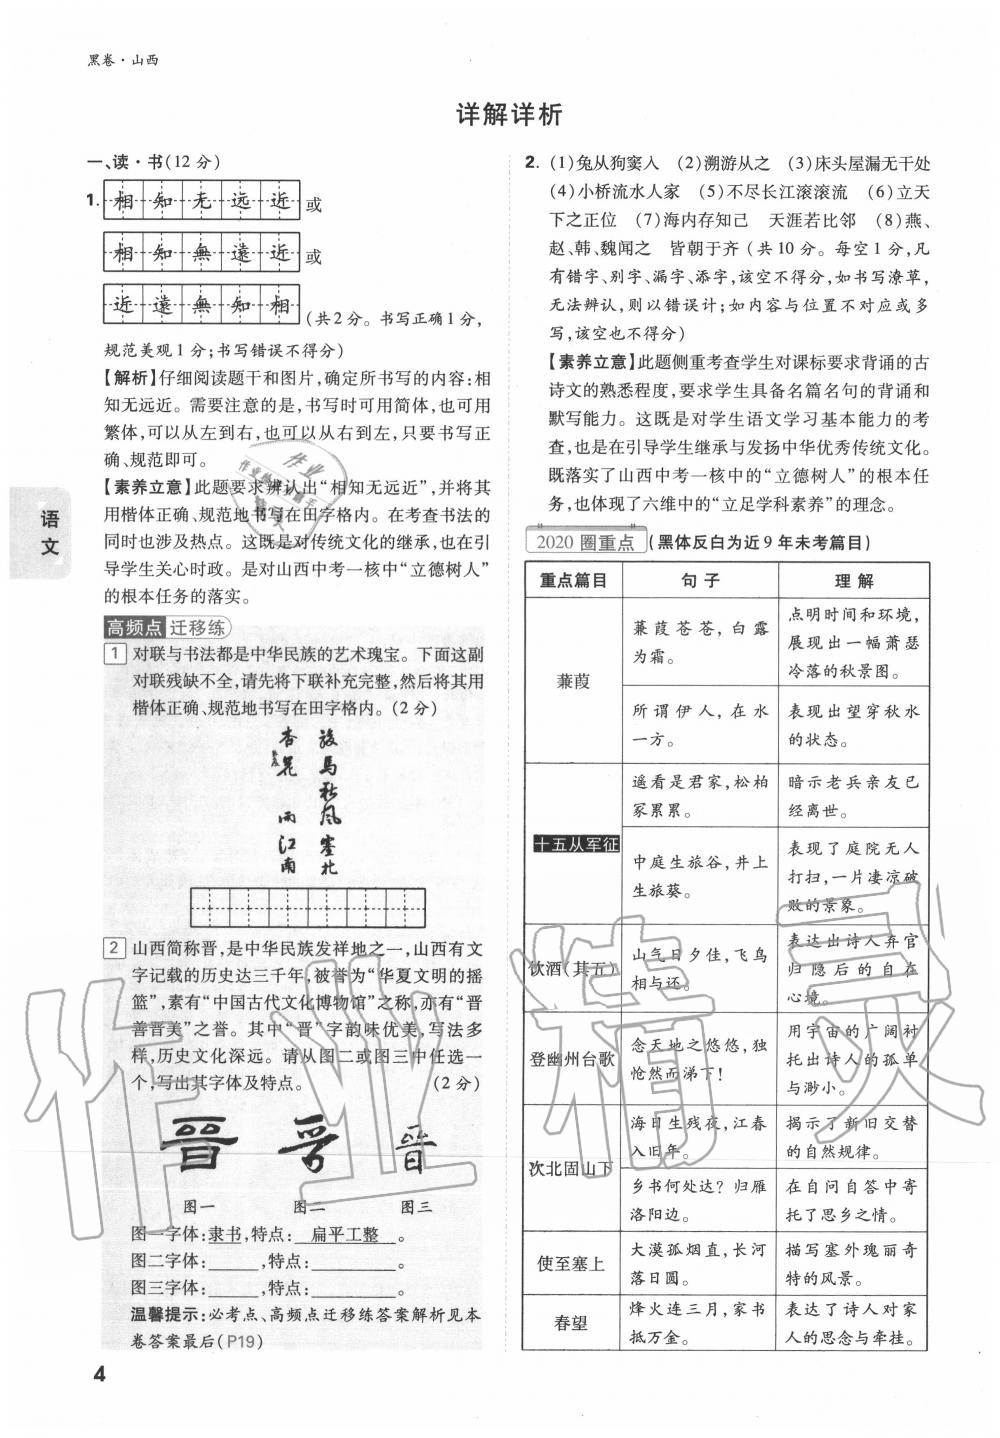 黑卷·山西
详解详析
一、读·书(12 分)
1. 相知无远近 或
相知無遠近 或
近遠無知相 (共2分。书写正确1分,
规范美观1分;书写错误不得分)
【解析】仔细阅读题干和图片,确定所书写的内容:相
知无远近。需要注意的是,书写时可用简体,也可用
繁体,可以从左到右,也可以从右到左,只要书写正
确、规范即可。
【素养立意】此题要求辨认出“相知无远近”,并将其
用楷体正确、规范地书写在田字格内。在考查书法的
同时也涉及热点。这既是对传统文化的继承,也在引
导学生关心时政。是对山西中考一核中“立德树人”
的根本任务的落实。
高频点 迁移练
1 对联与书法都是中华民族的艺术瑰宝。下面这副
对联残缺不全,请先将下联补充完整,然后将其用
楷体正确、规范地书写在田字格内。(2 分)
骏马秋风塞北
杏花 雨江南
2 山西简称晋,是中华民族发祥地之一,山西有文
字记载的历史达三千年,被誉为“华夏文明的摇
篮”,素有“中国古代文化博物馆”之称,亦有“晋
善晋美”之誉。其中“晋”字韵味优美,写法多
样,历史文化深远。请从图二或图三中任选一
个,写出其字体及特点。 (2 分)
晉 晉 晉
图一 图二 图三
图一字体:隶书,特点: 扁平工整 。
图二字体:______,特点:________。
图三字体:______,特点:________。
温馨提示:必考点、高频点迁移练答案解析见本
卷答案最后(P19)
4
语文
2. (1)兔从狗窦入 (2)溯游从之 (3)床头屋漏无干处
(4)小桥流水人家 (5)不尽长江滚滚流 (6)立天
下之正位 (7)海内存知己 天涯若比邻 (8)燕、
赵、韩、魏闻之 皆朝于齐 (共 10 分。每空 1 分,凡
有错字、别字、漏字、添字,该空不得分,如书写潦草,
无法辨认,则以错误计;如内容与位置不对应或多
写,该空也不得分)
【素养立意】此题侧重考查学生对课标要求背诵的古
诗文的熟悉程度,要求学生具备名篇名句的背诵和
默写能力。这既是对学生语文学习基本能力的考
查,也是在引导学生继承与发扬中华优秀传统文化。
既落实了山西中考一核中的“立德树人”的根本任
务,也体现了六维中的“立足学科素养”的理念。
2020 圈重点 (黑体反白为近 9 年未考篇目)
重点篇目 句子 理解
蒹葭
蒹葭苍苍,白露
为霜。
点明时间和环境,
展现出一幅萧瑟
冷落的秋景图。
所谓伊人,在水
一方。
表现出望穿秋水
的状态。
十五从军征
遥看是君家,松柏
冢累累。
暗示老兵亲友已
经离世。
中庭生旅谷,井上
生旅葵。
表现了庭院无人
打扫,一片凄凉破
败的景象。
饮酒(其五)
山气日夕佳,飞鸟
相与还。
表达出诗人弃官
归隐后的自在
心境。
登幽州台歌
念天地之悠悠,独
怆然而涕下!
用宇宙的广阔衬
托出诗人的孤单
与渺小。
次北固山下
海日生残夜,江春
入旧年。
揭示了新旧交替
的自然规律。
乡书何处达?归雁
洛阳边。
在自问自答中寄
托了思乡之情。
使至塞上
大漠孤烟直,长河
落日圆。
描写塞外瑰丽奇
特的风景。
春望
烽火连三月,家书
抵万金。
表达了诗人对家
人的思念与牵挂。
作业精灵